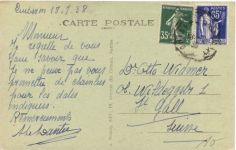 Quiberon 18.7.38
CARTE POSTALE
Monsieur
Je regrette de vous
faire savoir que
je ne peux pas vous
promettre de chambres
pour les dates
indiquées.
Remerciements
35c
65c
Dr Otto Widmer
St Gall
Suisse